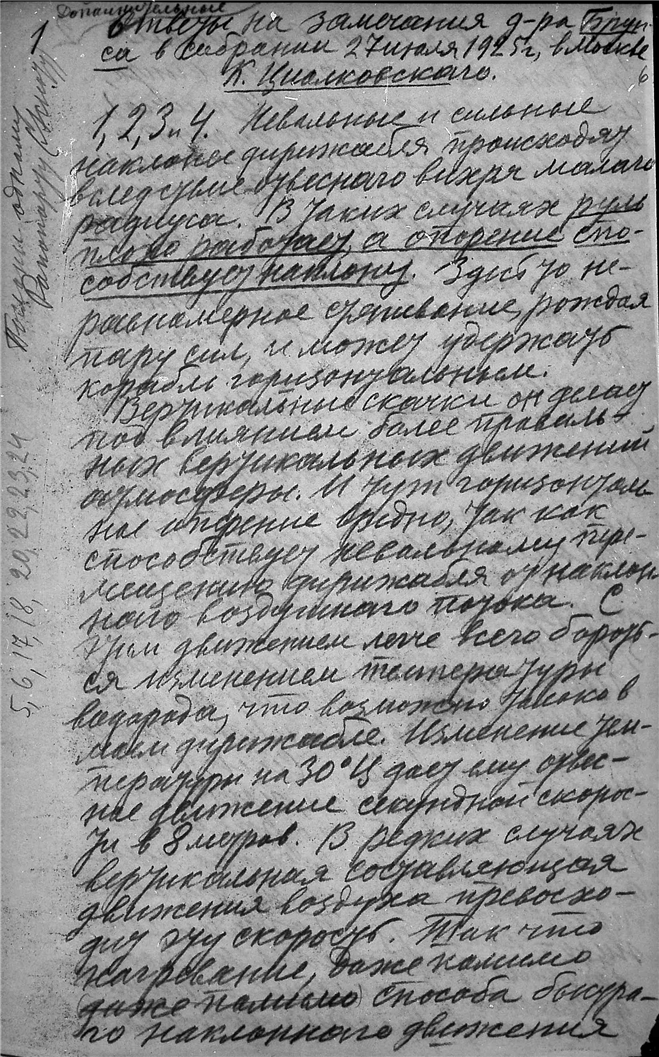 1
Дополнительные
Ответы на замечания д-ра Брун-
са в собрании 27 июля 1925 г., в Москве
К. Циолковскаго.
6
1, 2, 3 и 4. Невольные и сильные
наклоны дирижабля происходят
вследствие отвеснаго вихря малаго
радиуса. В таких случаях руль
плохо работает, а оперение спо-
собствует наклону. Здесь то не-
равномерное стягивание, рождая
пару сил, и может удержать
корабль горизонтальным.
Вертикальные скачки он делает
под влиянием более правиль-
ных вертикальных движений
атмосферы. И тут горизонталь-
ное оперение вредно, так как
способствует невольному пере-
мещению дирижабля от наклон-
наго воздушнаго потока. С
этим движением легче всего бороть-
ся изменением температуры
водорода, что возможно только в
моем дирижабле. Изменение тем-
пературы на 30° Ц дает ему отвес-
ное движение секундной скорос-
ти в 8 метров. В редких случаях
вертикальная составляющая
движения воздуха превосхо-
дит эту скорость. Так что
нагревание, даже помимо
(даже помимо) способа быстра-
го наклоннаго движения
5, 6, 17, 18, 20, 22, 23, 24